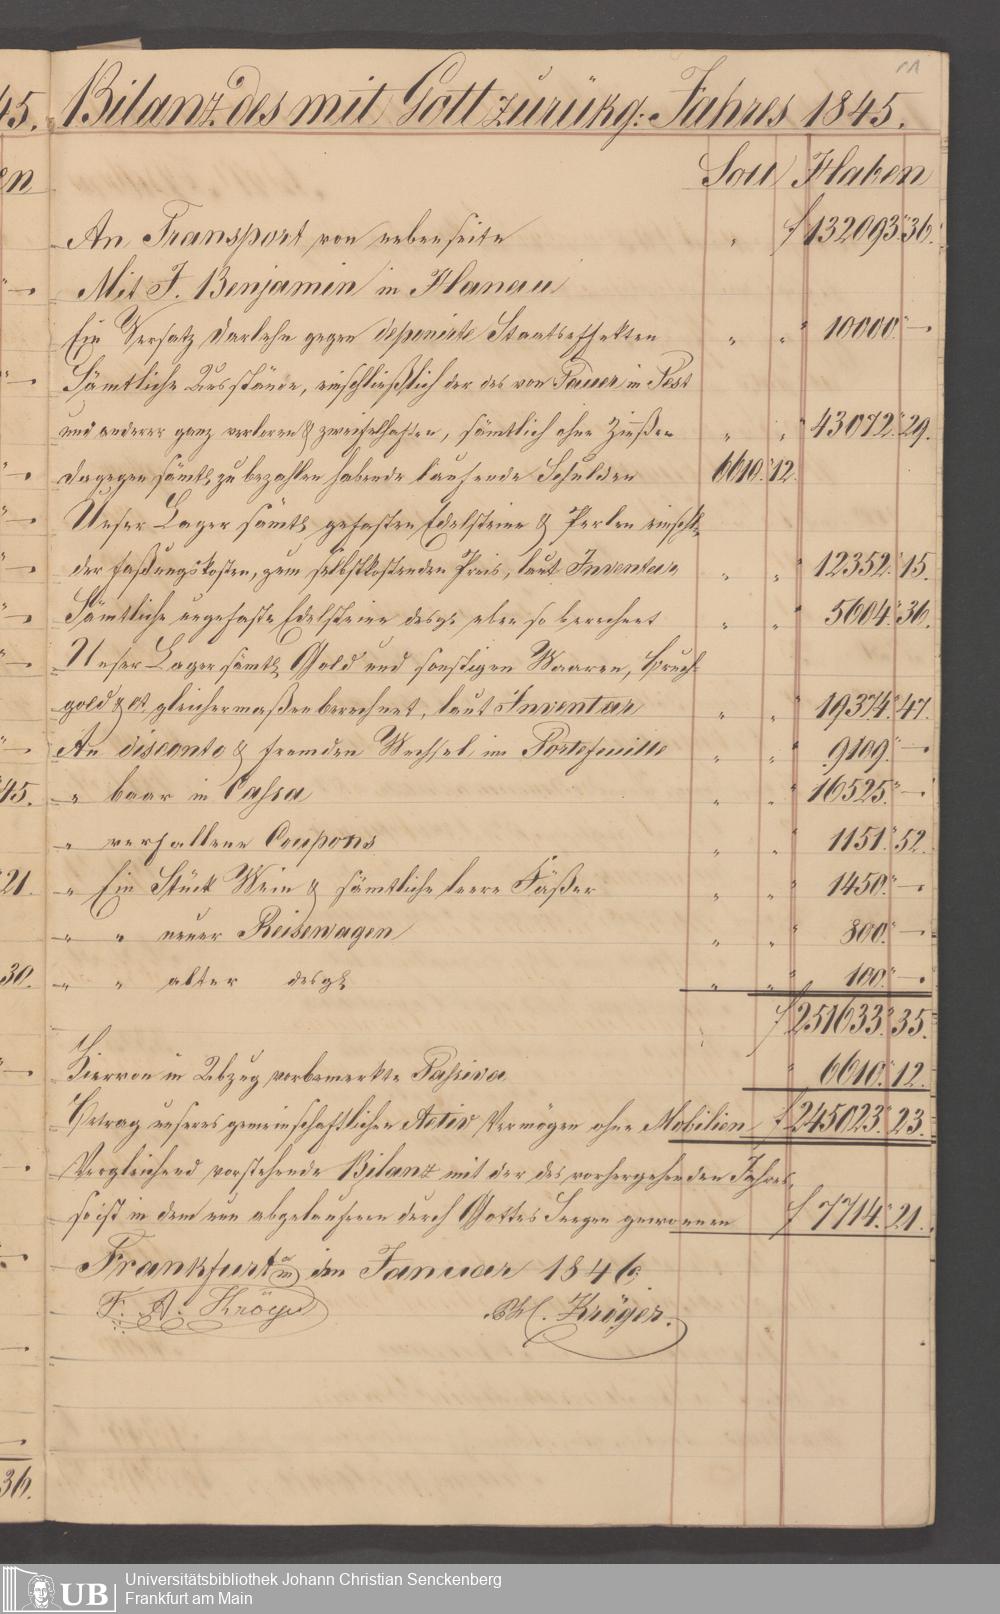 45. Bilanz des mit Gott zurükg: Jahres 1845.
en Soll Haben
An Transport von nebenseite " f 132093 " 36.
Mit J. Benjamin in Hanau
Ein Versatz Darlehn gegen deponirte Staatseffekten " " " 10000 " —.
Sämtliche Ausstände, einschließlich der des von Pauer in Pest
und anderer ganz verloren & zweifelhaften, sämtlich ohne Zinßen " " " 43072 " 29.
dagegen sämtl zu bezahlen habende laufende Schulden 6610 " 12.
Unser Lager sämtl gefasten Edelsteine & Perlen einschl
der faßungskosten, zum selbstkostenden Preis, laut Inventar " " " 12352 " 15.
Sämtliche ungefaste Edelsteine desgl eben so berechnet " " " 5604 " 36.
Unser Lager sämtl Gold und sonstigen Waaren, bruch-
gold & ct gleichermaßen berechnet, laut Inventar " " " 19374 " 47.
An disconto & fremden Wechsel im Portefeuille " " " 9109 " —.
45. " baar in Cassa " " " 16525 " —.
" verfallene Coupons " " " 1151 " 52.
21. " Ein Stück Wein & sämtliche leere Fäßer " " " 1450 " —.
" " neuer Reisewagen " " " 300 " —.
30. " " alter desgl " " " 100 " —.
f 251633 " 35.
Hiervon in Abzug vorbemerkte Passiva " 6610 " 12.
Betrag unseres gemeinschaftlichen Activ Vermögen ohne Mobilien f 245023 " 23.
Vergleichend vorstehende Bilanz mit der des vorhergehenden Jahres,
so ist in dem nun abgelaufenen durch Gottes Seegen gewonnen f 7714 " 21.
Frankfurt a/m den Januar 1846
F. A. Kröger Kröger.
36.
UB Universitätsbibliothek Johann Christian Senckenberg
Frankfurt am Main